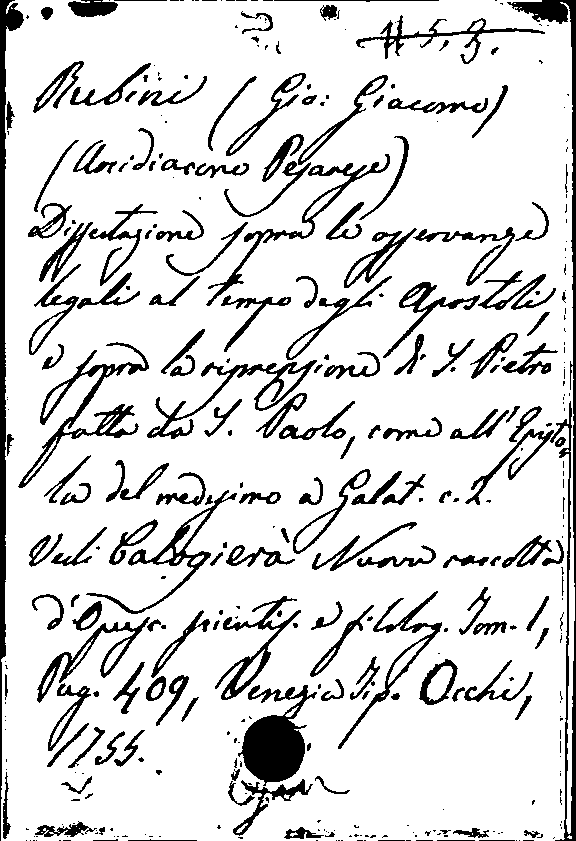 H 5. 3.
Rubini (Gio: Giacomo)
(Arcidiacono Pesarese)
Dissertazione sopra le osservanze
legali al tempo degli Apostoli,
e sopra la riprensione di S. Pietro
fatta da S. Paolo, come all'Episto-
la del medesimo a Galat. c. 2.
Vedi Calogierà Nuova raccolta
d'Opusc. scientif. e filolog. Tom. 1,
Pag. 409, Venezia Tip. Occhi,
1755.